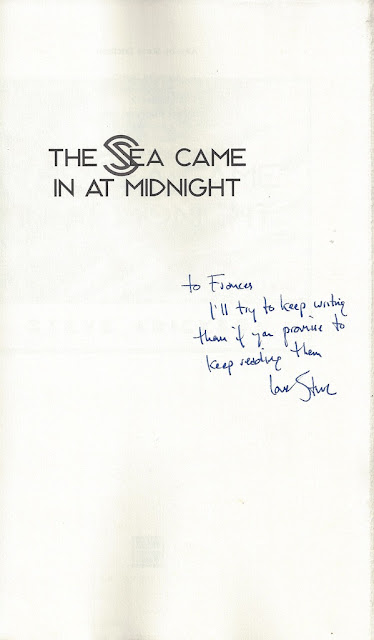 THE SEA CAME
IN AT MIDNIGHT
to Frances
I'll try to keep writing
them if you promise to
keep reading them
love Steve